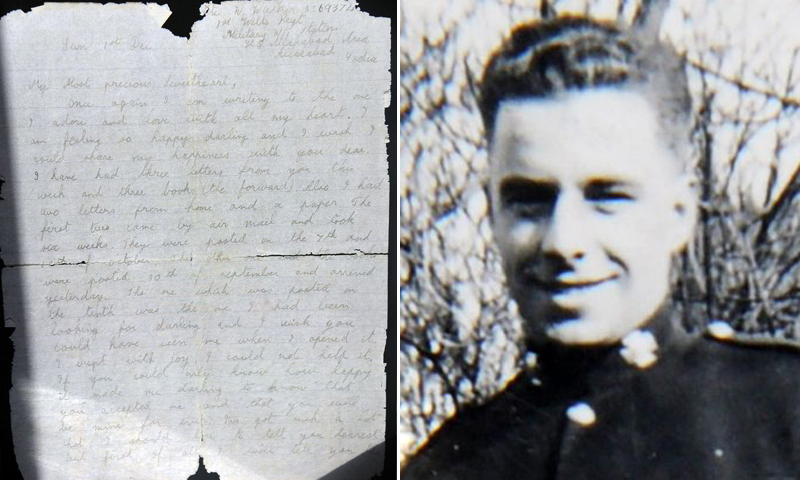 1st Wilts Regt
Military
India
Sun 1st Dec
My Most precious Sweetheart,
Once again I am writing to the one
I adore and love with all my heart. I
am feeling so happy darling and I wish I
could share my happiness with you dear.
I have had three letters from you this
week and three books (the forwards) Also I had
two letters from home and a paper. The
first two came by air mail and took
six weeks. They were posted on the 7th and
of october. The
were posted 10th of september and arrived
yesterday. The one which was posted on
the tenth was the one I had been
looking for darling and I wish you
could have seen me when I opened it.
I wept with joy I could not help it,
If you could only know how happy
it made me darling to know that
you accepted me and that you were
be mine for ever. I've got such a lot
that I should to tell you dearest
but first of all I must tell you